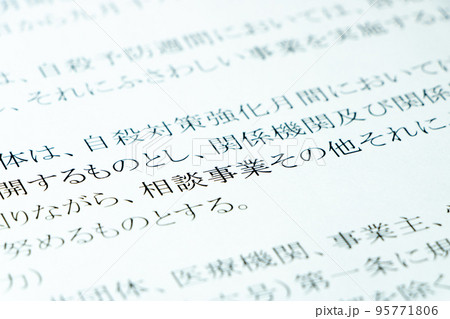 は、自殺予防週間においては、
、それにふさわしい事業を実施する
体は、自殺対策強化月間においては
開するものとし、関係機関及び関係
りながら、相談事業その他それに
努めるものとする。
力）
団体、医療機関、事業主、
号）第一条に規
を除く
pixta.jp - 95771806